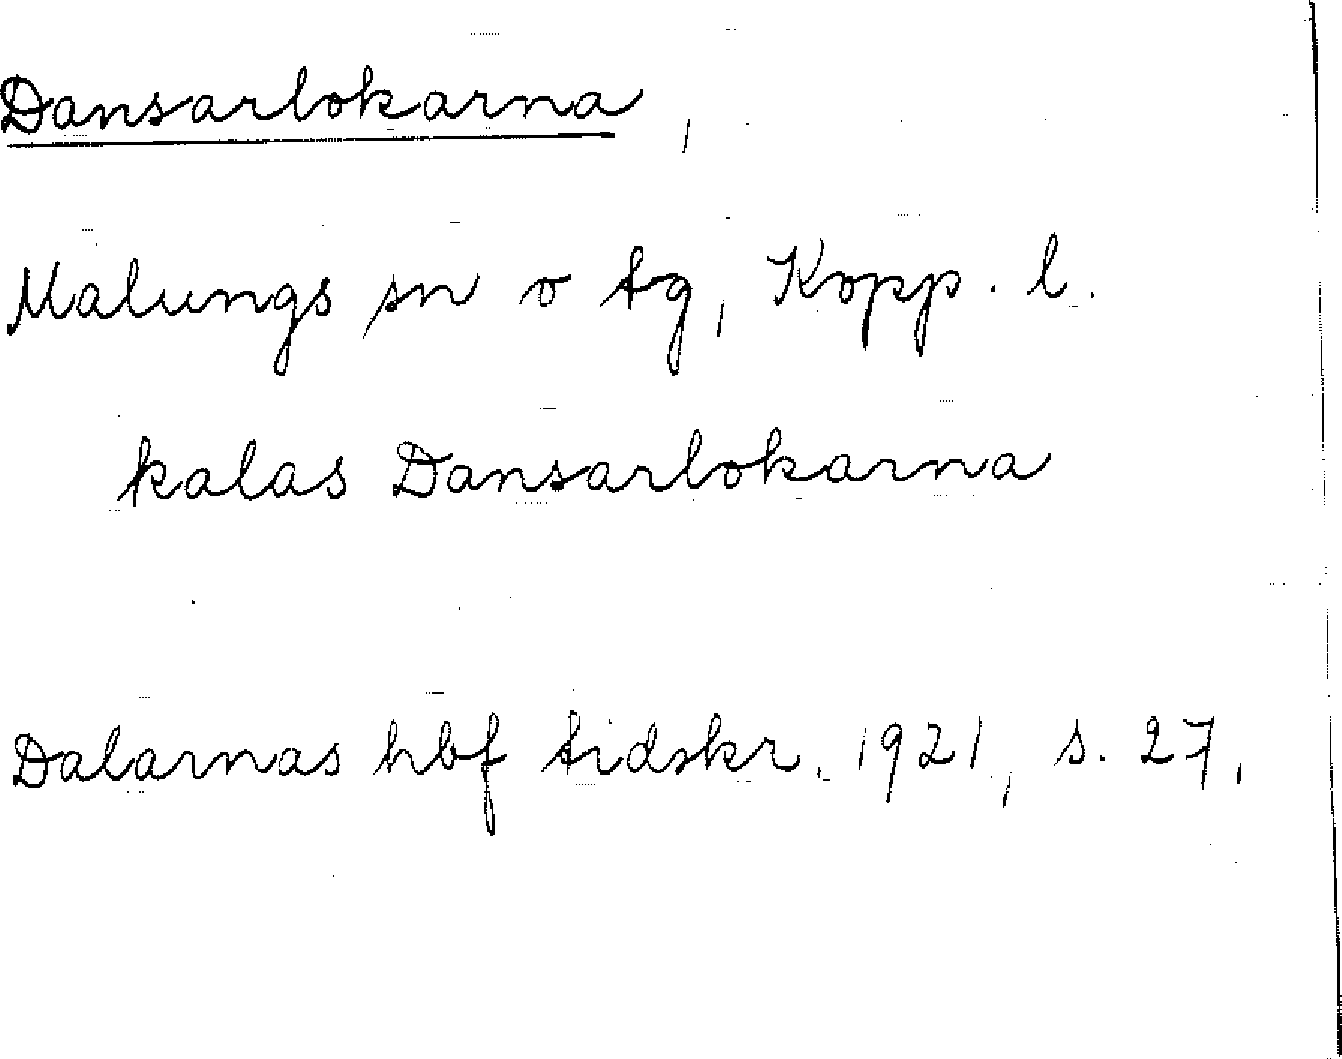 Dansarlokarna,
Malungs sn o tg, Kopp. l.
kalas Dansarlokarna
Dalarnas hbf tidskr. 1921, s. 27.